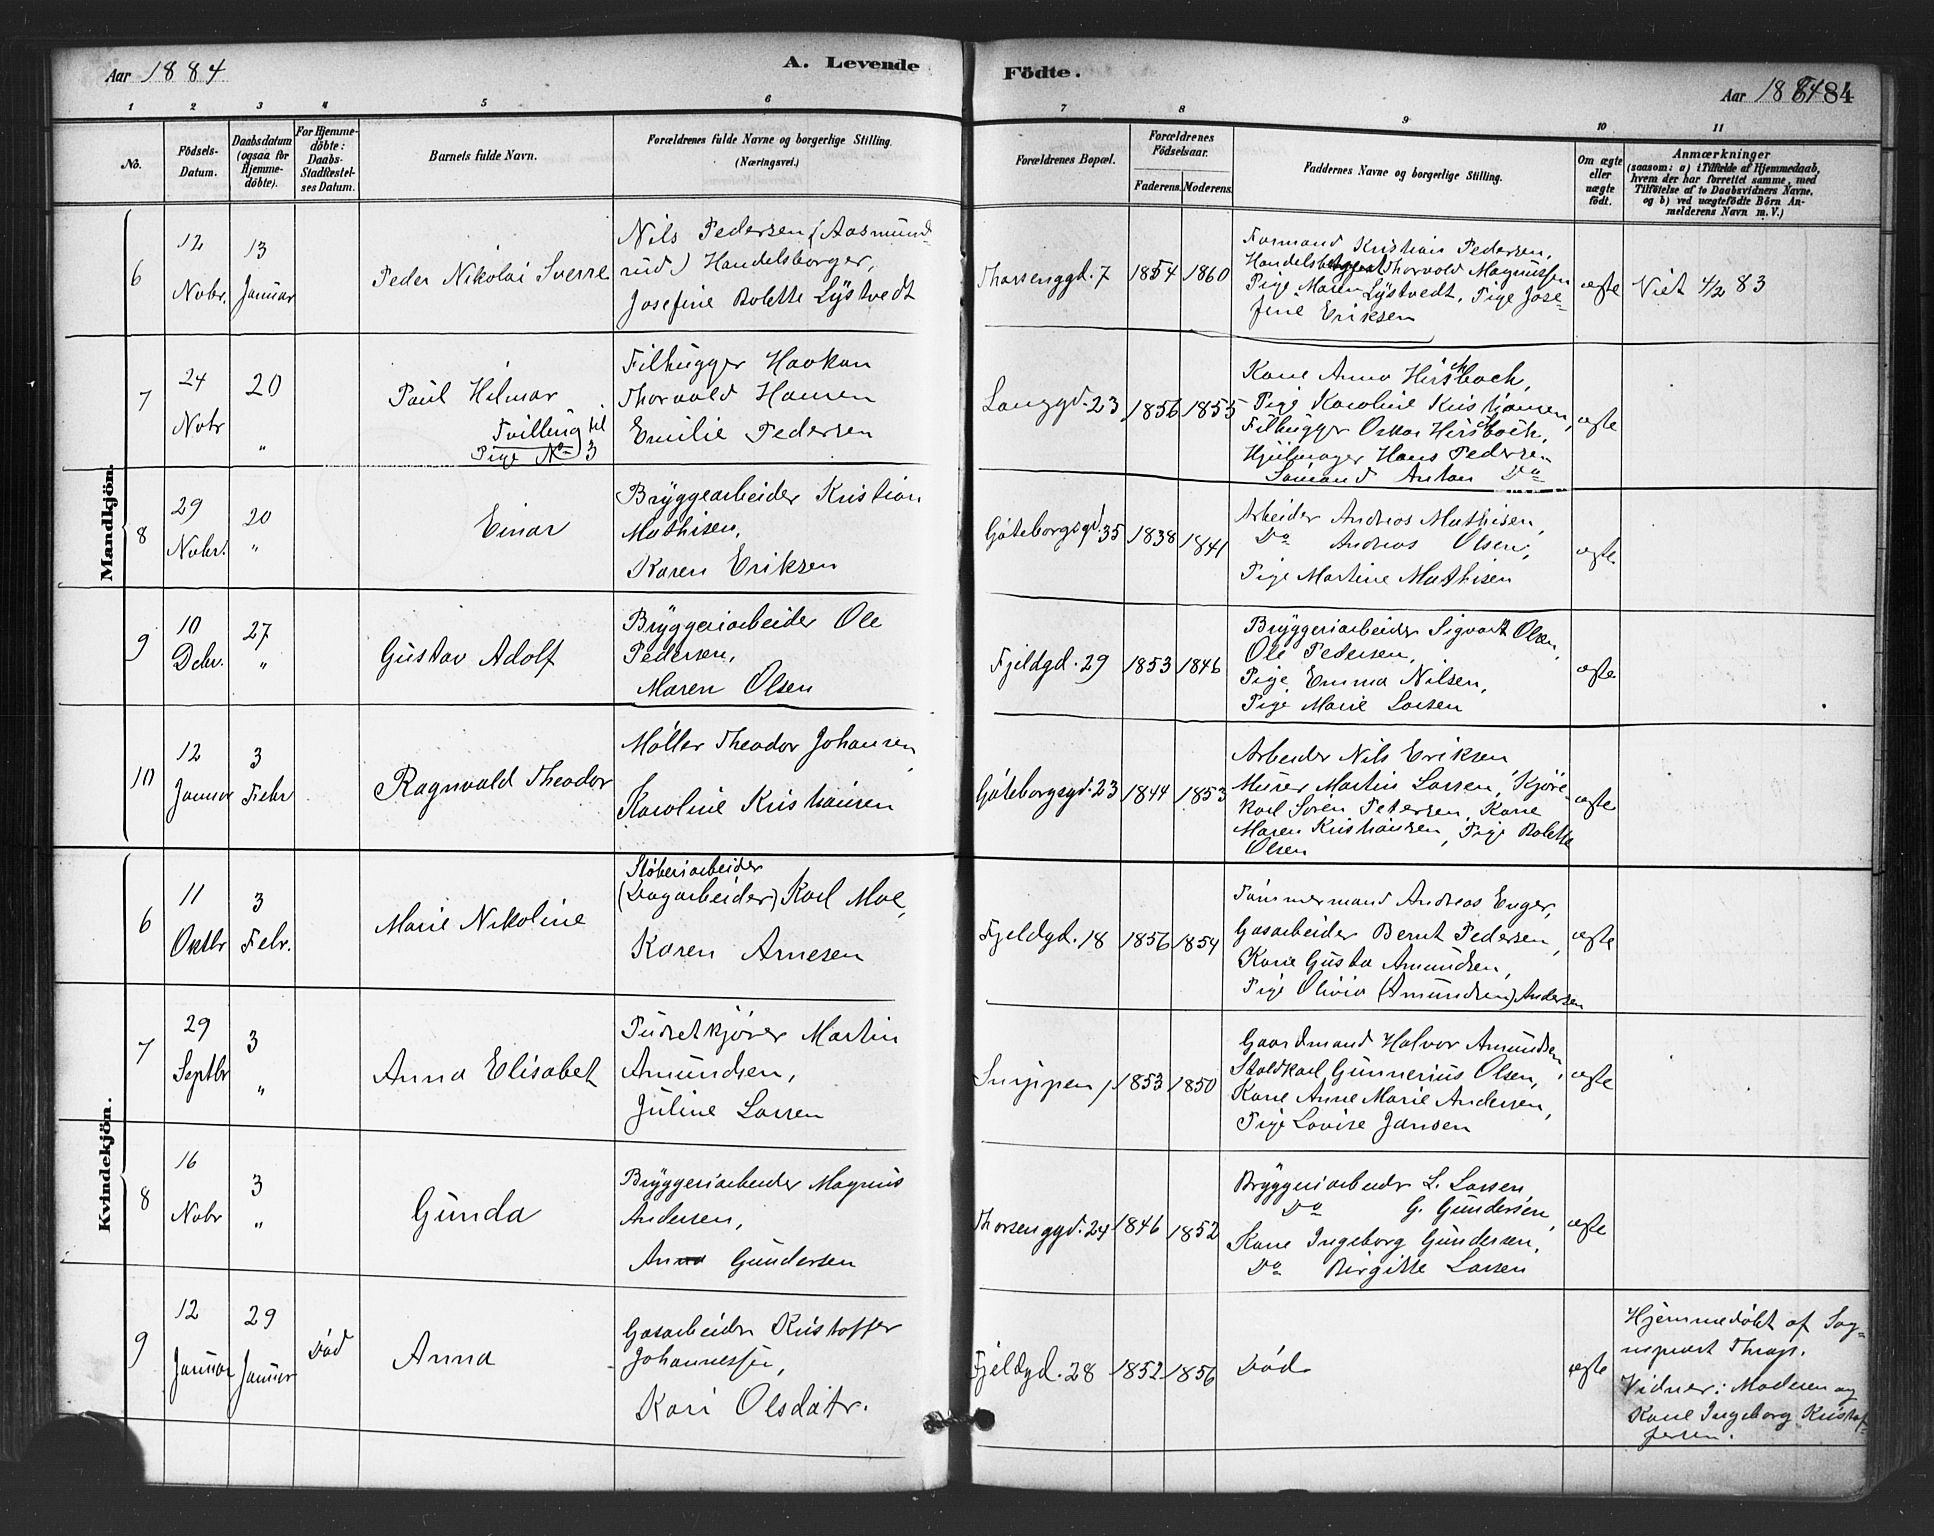 Aar 1884
A. Levende
Födte.
Aar 1884 84
1 2 3 4 5 6 7 8 9 10 11
No.
Födsels-
Datum.
Daabsdatum
(ogsaa for
Hjemme-
döbte).
For Hjemme-
döbte:
Daabs-
Stadfæstel-
ses Datum.
Barnets fulde Navn.
Forældrenes fulde Navne og borgerlige Stilling.
(Næringsvei.)
Forældrenes Bopæl.
Forældrenes
Födselsaar.
Faderens. Moderens.
Faddernes Navne og borgerlige Stilling.
Om ægte
eller
uægte
födt.
Anmærkninger
(saasom: a) i Tilfælde af Hjemmedaab,
hvem der har forrettet samme, med
Tilföielse af to Daabsvidners Navne,
og b) ved uægtefödte Börn An-
melderens Navn m. V.)
Mandkjön.
6
12
Novbr.
13
Januar
Peder Nikolai Sverre
Nils Pedersen (Aasmund-
rud) Handelsborger,
Josefine Bolette Lystvedt
Thorsenggd. 7
1854
1860
Formand Kristian Pedersen,
Handelsbetjent Thorvald Magnussen
Pige Maren Lystvedt, Pige Jose-
fine Eriksen
ægte
Viet 4/2 83
7
24
Novbr
20
"
Paul Hilmar
Tvilling til
Pige No 3
Filhugger Haakon
Thorvald Hansen
Emilie Pedersen
Langgd. 23
1856
1855
Kone Anna Hirschboch,
Pige Karoline Kristiansen,
Filhugger Oskar Hirschboch,
Hjulmager Hans Pedersen
Sömand Anton Do
ægte
8
29
Novbr.
20
"
Einar
Bryggearbeider Kristian
Mathisen,
Karen Eriksen
Göteborgsgd. 35
1838
1841
Arbeider Andreas Mathisen,
Do Andreas Olsen,
Pige Martine Mathisen
ægte
9
10
Debr.
27
"
Gustav Adolf
Bryggeriarbeider Ole
Pedersen,
Maren Olsen
Fjeldgd. 29
1853
1846
Bryggeriarbeider Sigvart Olsen,
Ole Pedersen,
Pige Emma Nilsen,
Pige Marie Larsen
ægte
10
12
Januar
3
Febr
Ragnvald Theodor
Møller Theodor Johansen,
Karoline Kristiansen
Göteborgsgd. 23
1844
1853
Arbeider Nils Eriksen
Murer Martin Larsen, Kjöre-
karl Sören Petersen, Kone
Maren Kristiansen, Pige Bolette
Olsen
ægte
Kvindekjön.
6
11
Oktbr
3
Febr.
Marie Nikoline
Støberiarbeider
(Dagarbeider) Karl Moe,
Karen Arnesen
Fjeldgd. 18
1856
1854
Tömmermand Andreas Enger,
Gasarbeider Bernt Pedersen,
Kone Gusta Amundsen,
Pige Olivia (Amundsen) Andersen
ægte
7
29
Septbr
3
"
Anna Elisabet
Martin
Amundsen,
Juline Larsen
1853
1850
Gaardmand Halvor Amundsen,
Staldkarl Gunnerius Olsen,
Kone Anne Marie Andersen,
Pige Lovise Jansen
ægte
8
16
Novbr
3
"
Gunda
Bryggeriarbeider Magnus
Andersen,
Anna Gundersen
Thorsenggd. 24
1846
1852
Bryggeriarbeider L. Larsen
Do G. Gundersen,
Kone Ingeborg Gundersen,
Do Birgitte Larsen
ægte
9
12
Januar
29
Januar
Död
Anna
Gasarbeider Kristoffer
Johannessen,
Kari Olsdatr.
Fjeldgd. 28
1852
1856
Död
ægte
Hjemmedöbt af Sog-
nepræst Thrap.
Vidner: Moderen og
Kone Ingeborg Kristof-
fersen.